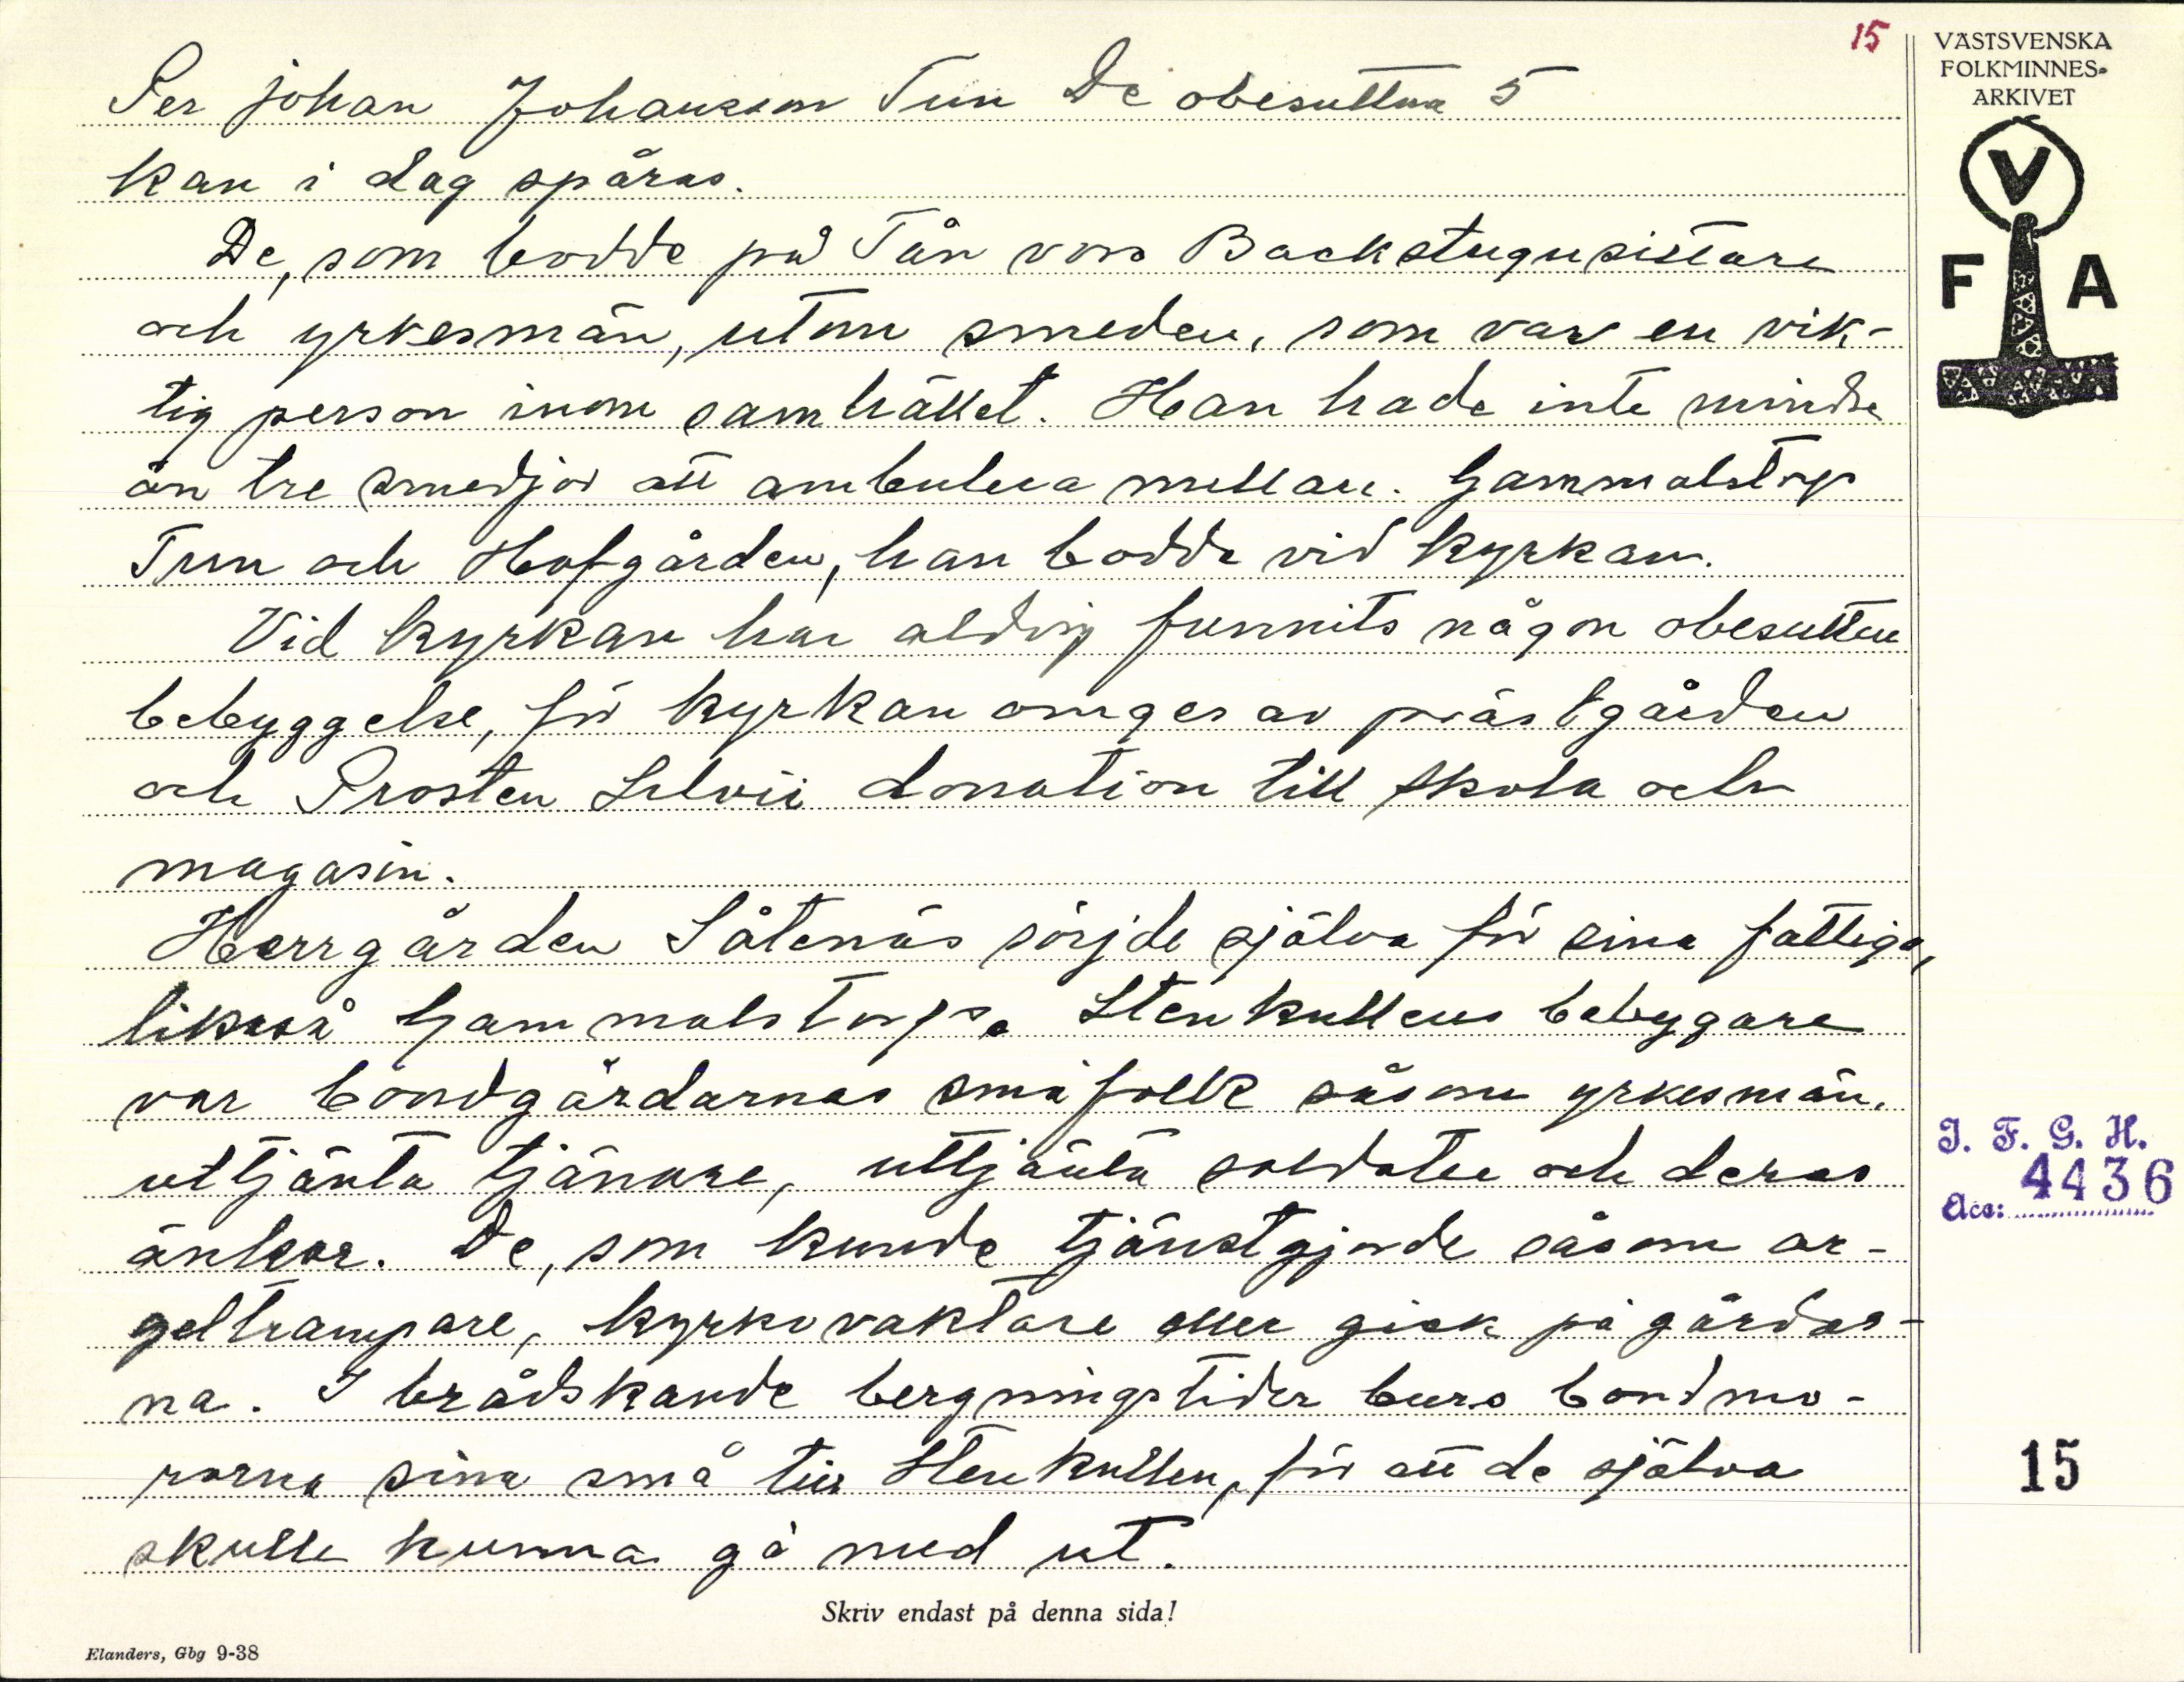 15
Per johan Johansson Tun De obesuttna 5
kan i dag spåras.
De, som bodde på Tån voro Backstugusittare
och yrkesmän, utom smeden, som var en vik-
tig person inom samhället. Han hade inte mindre
än tre smedjor att ambulera mellan. Gammalstorp
Tun och Hofgården, han bodde vid kyrkan.
Vid kyrkan har aldrig funnits någon obesutten
bebyggelse, för kyrkan omges av prästgården
och Prosten donation till skola och
magasin.
Herrgården Såtenäs sörjde själva för sina fattiga,
likaså Gammalstorps. Stenkullens bebyggare
var bondgårdarnas småfolk såsom yrkesmän,
uttjänta tjänare, uttjänta soldater och deras
änkor. De, som kunde tjänstgjorde såsom or-
geltrampare, kyrkovaktare eller gick på gårdar-
na. I brådskande bergningstider buro bondmo-
rorna sina små till Stenkullen, för att de själva
skulle kunna gå med ut.
Skriv endast på denna sida!
Elanders, Gbg 9-38
VÄSTSVENSKA
FOLKMINNES-
ARKIVET
V
F A
I. F. G. H.
Acc: 4436
15